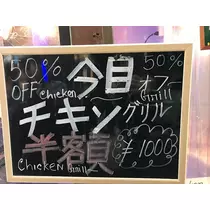 50% 今日 50%
OFF Chicken オフ Grill
チキングリル
半額 ¥1000
Chicken Grill